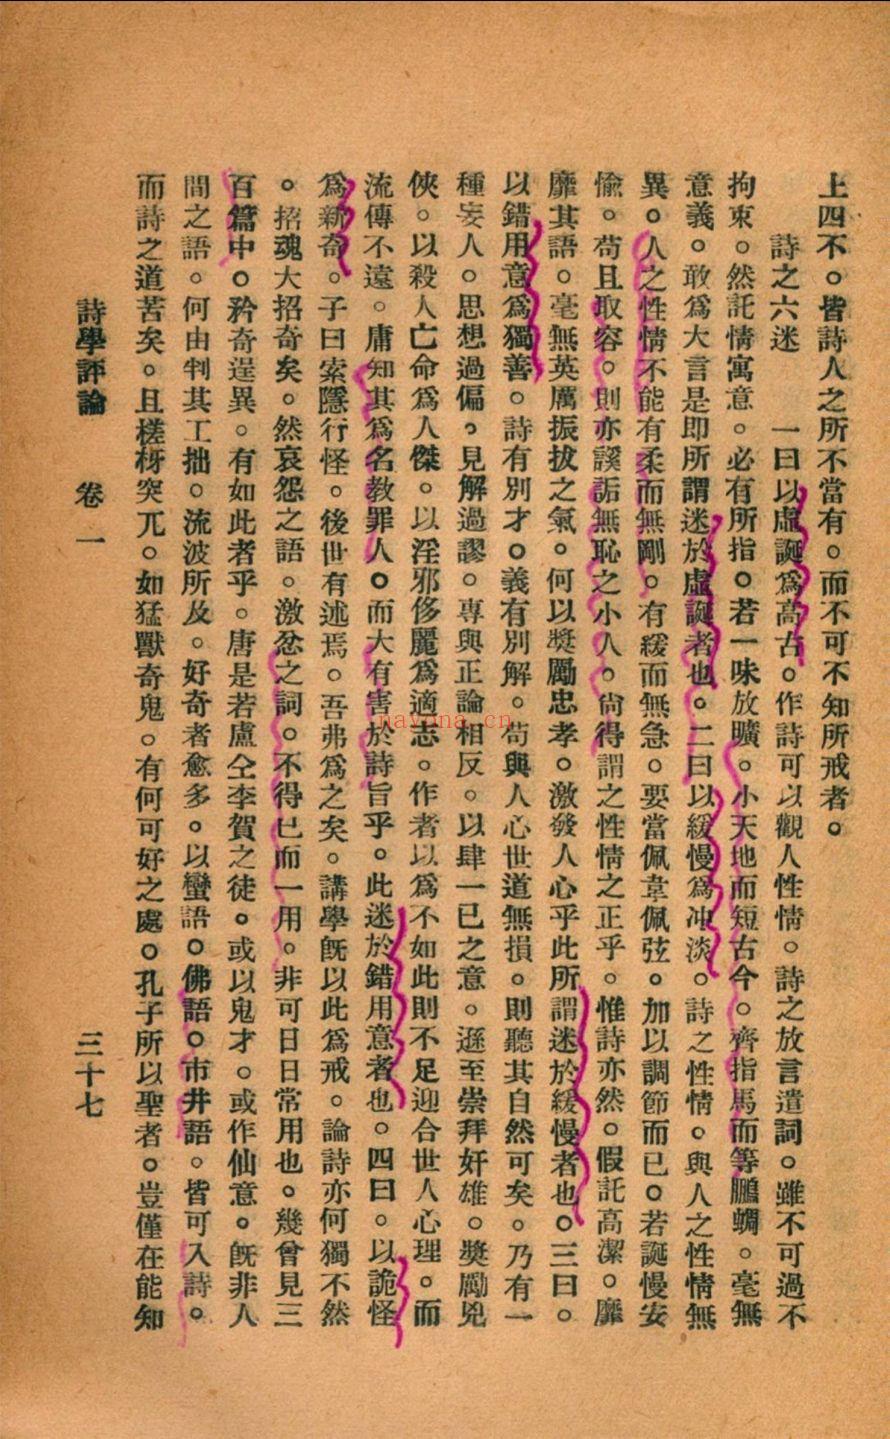 上四不。皆詩人之所不當有。而不可不知所戒者。
詩之六迷　一曰以虛誕爲高古。作詩可以觀人性情。詩之放言遣詞。雖不可過不
拘束。然託情寓意。必有所指。若一味放曠。小天地而短古今。齊指馬而等鵬蜩。毫無
意義。敢爲大言是即所謂迷於虛誕者也。二曰以緩慢爲冲淡。詩之性情。與人之性情無
異。人之性情不能有柔而無剛。有緩而無急。要當佩韋佩弦。加以調節而已。若誕慢安
愉。苟且取容。則亦謑詬無恥之小人。尚得謂之性情之正乎。惟詩亦然。假託高潔。靡
靡其語。毫無英厲振拔之氣。何以獎勵忠孝。激發人心乎此所謂迷於緩慢者也。三曰。
以錯用意爲獨善。詩有別才。義有別解。苟與人心世道無損。則聽其自然可矣。乃有一
種妄人。思想過偏。見解過謬。專與正論相反。以肆一己之意。遜至崇拜奸雄。獎勵兇
俠。以殺人亡命爲人傑。以淫邪侈麗爲適志。作者以爲不如此則不足迎合世人心理。而
流傳不遠。庸知其爲名教罪人。而大有害於詩旨乎。此迷於錯用意者也。四曰。以詭怪
爲新奇。子曰索隱行怪。後世有述焉。吾弗爲之矣。講學既以此爲戒。論詩亦何獨不然
。招魂大招奇矣。然哀怨之語。激忿之詞。不得已而一用。非可日日常用也。幾曾見三
百篇中。矜奇逞異。有如此者乎。唐是若盧仝李賀之徒。或以鬼才。或作仙意。既非人
間之語。何由判其工拙。流波所及。好奇者愈多。以蠻語。佛語。市井語。皆可入詩。
而詩之道苦矣。且槎枒突兀。如猛獸奇鬼。有何可好之處。孔子所以聖者。豈僅在能知
詩學評論　卷一　三十七
nayona.cn